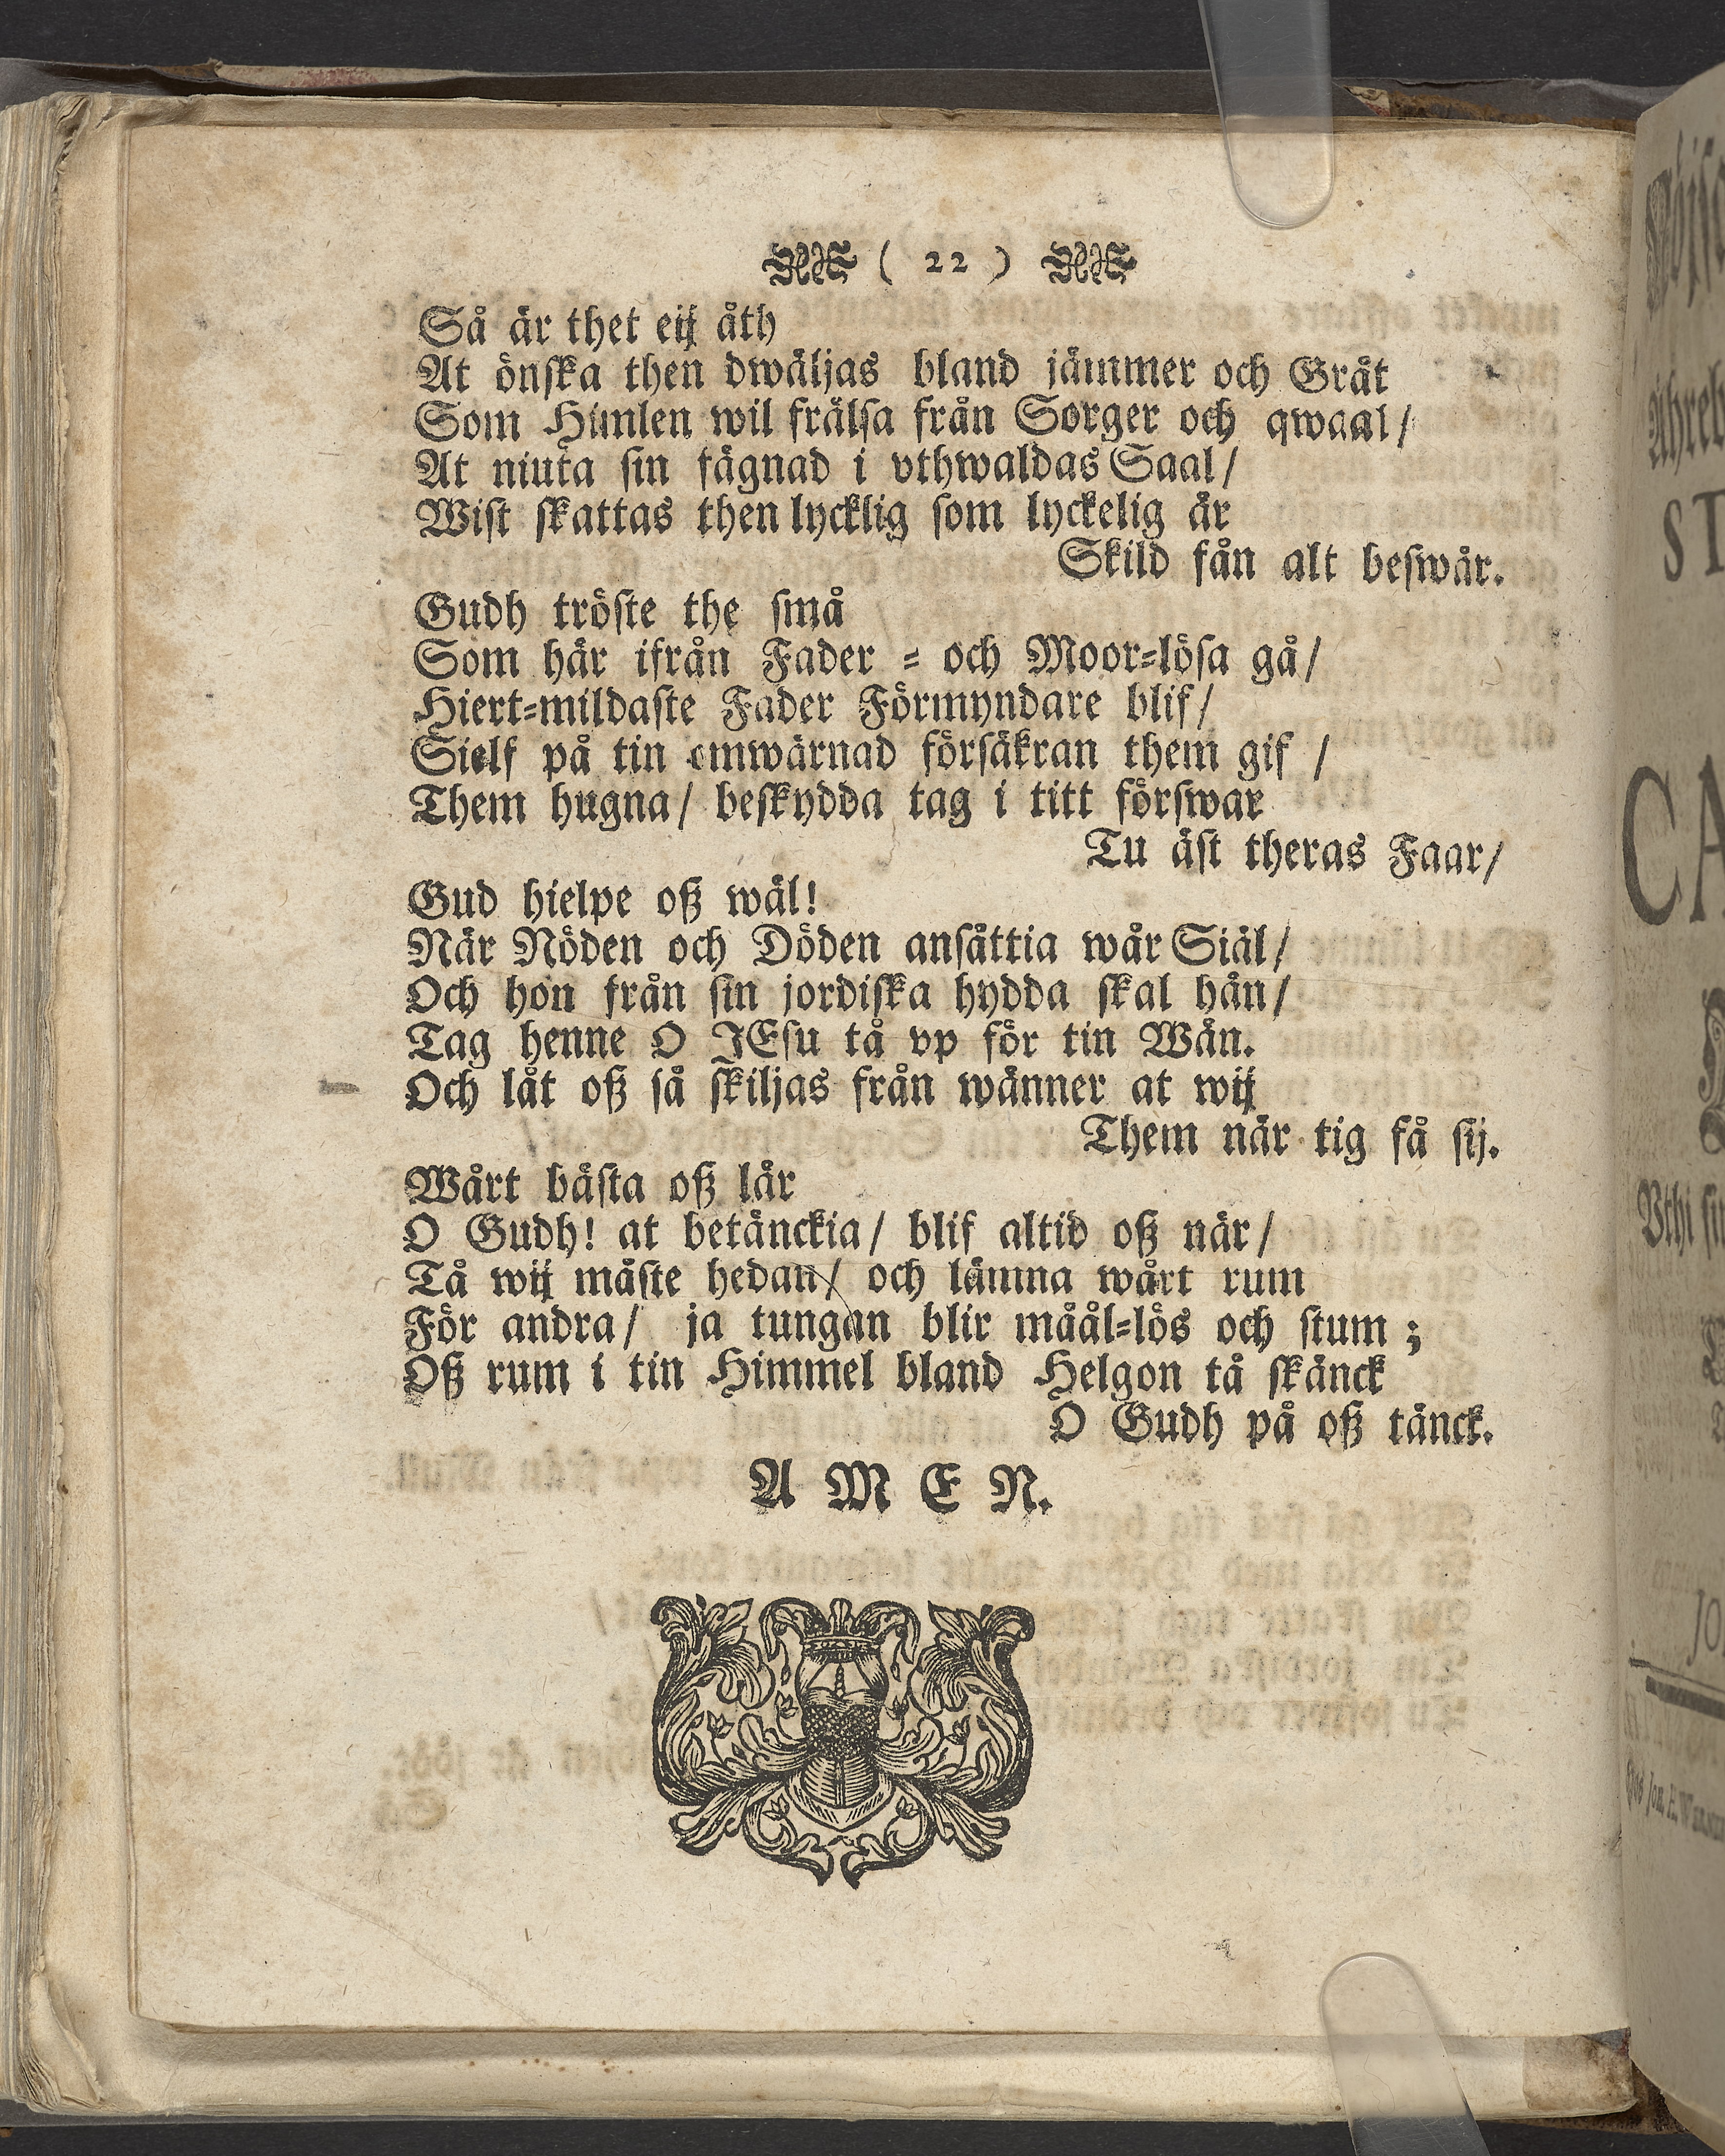 ( 22 )
Så är thet eij åth
At önska then dwäljas bland jämmer och Gråt
Som Himlen wil frälsa från Sorger och qwaal/
At niuta sin fägnad i vthwaldas Saal/
Wist skattas then lycklig som lyckelig är
Skild fån alt beswär.
Gudh tröste the små
Som här ifrån Fader = och Moor=lösa gå/
Hiert=mildaste Fader Förmyndare blif/
Sielf på tin omwärnad försäkran them gif /
Them hugna/ beskydda tag i titt förswar
Tu äst theras Faar/
Gud hielpe oß wäl!
När Nöden och Döden ansättia wår Siäl/
Och hon från sin jordiska hydda skal hän/
Tag henne O JEsu tå vp för tin Wän.
Och låt oß så skiljas från wänner at wij
Them när tig få sij.
Wårt bästa oß lär
O Gudh! at betänckia/ blif altid oß när/
Tå wij måste hedan/ och lämna wårt rum
För andra/ ja tungan blir måål=lös och stum ;
Oß rum i tin Himmel bland Helgon tå skänck
O Gudh på oß tänck.
A M E N.
ST
CA
Vthi